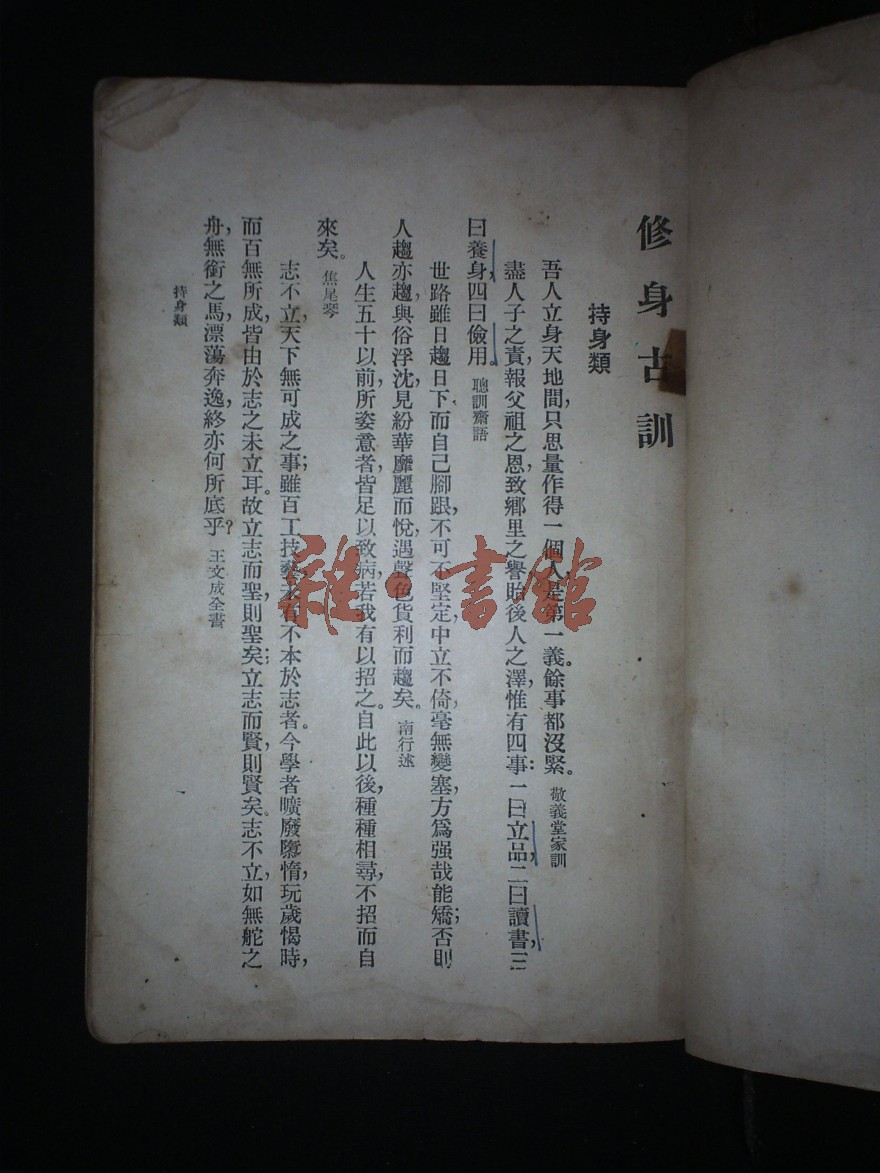 修身古訓
持身類
吾人立身天地間,只思量作得一個人,是第一義。餘事都沒緊。敬義堂家訓
盡人子之責,報父祖之恩,致鄉里之譽,貽後人之澤,惟有四事:一曰立品,二曰讀書,三
曰養身,四曰儉用。聰訓齋語
世路雖日趨日下,而自己腳跟,不可不堅定,中立不倚,毫無變塞,方爲强哉能矯;否則
人趨亦趨,與俗浮沈,見紛華靡麗而悅,遇聲色貨利而趨矣。南行述
人生五十以前,所姿意者,皆足以致病,若我有以招之。自此以後,種種相尋,不招而自
來矣。焦尾琴
志不立,天下無可成之事;雖百工技藝,未有不本於志者。今學者曠廢隳惰,玩歲愒時,
而百無所成,皆由於志之未立耳。故立志而聖,則聖矣;立志而賢,則賢矣。志不立,如無舵之
舟,無銜之馬,漂蕩奔逸,終亦何所底乎?王文成全書
持身類
雜·書館